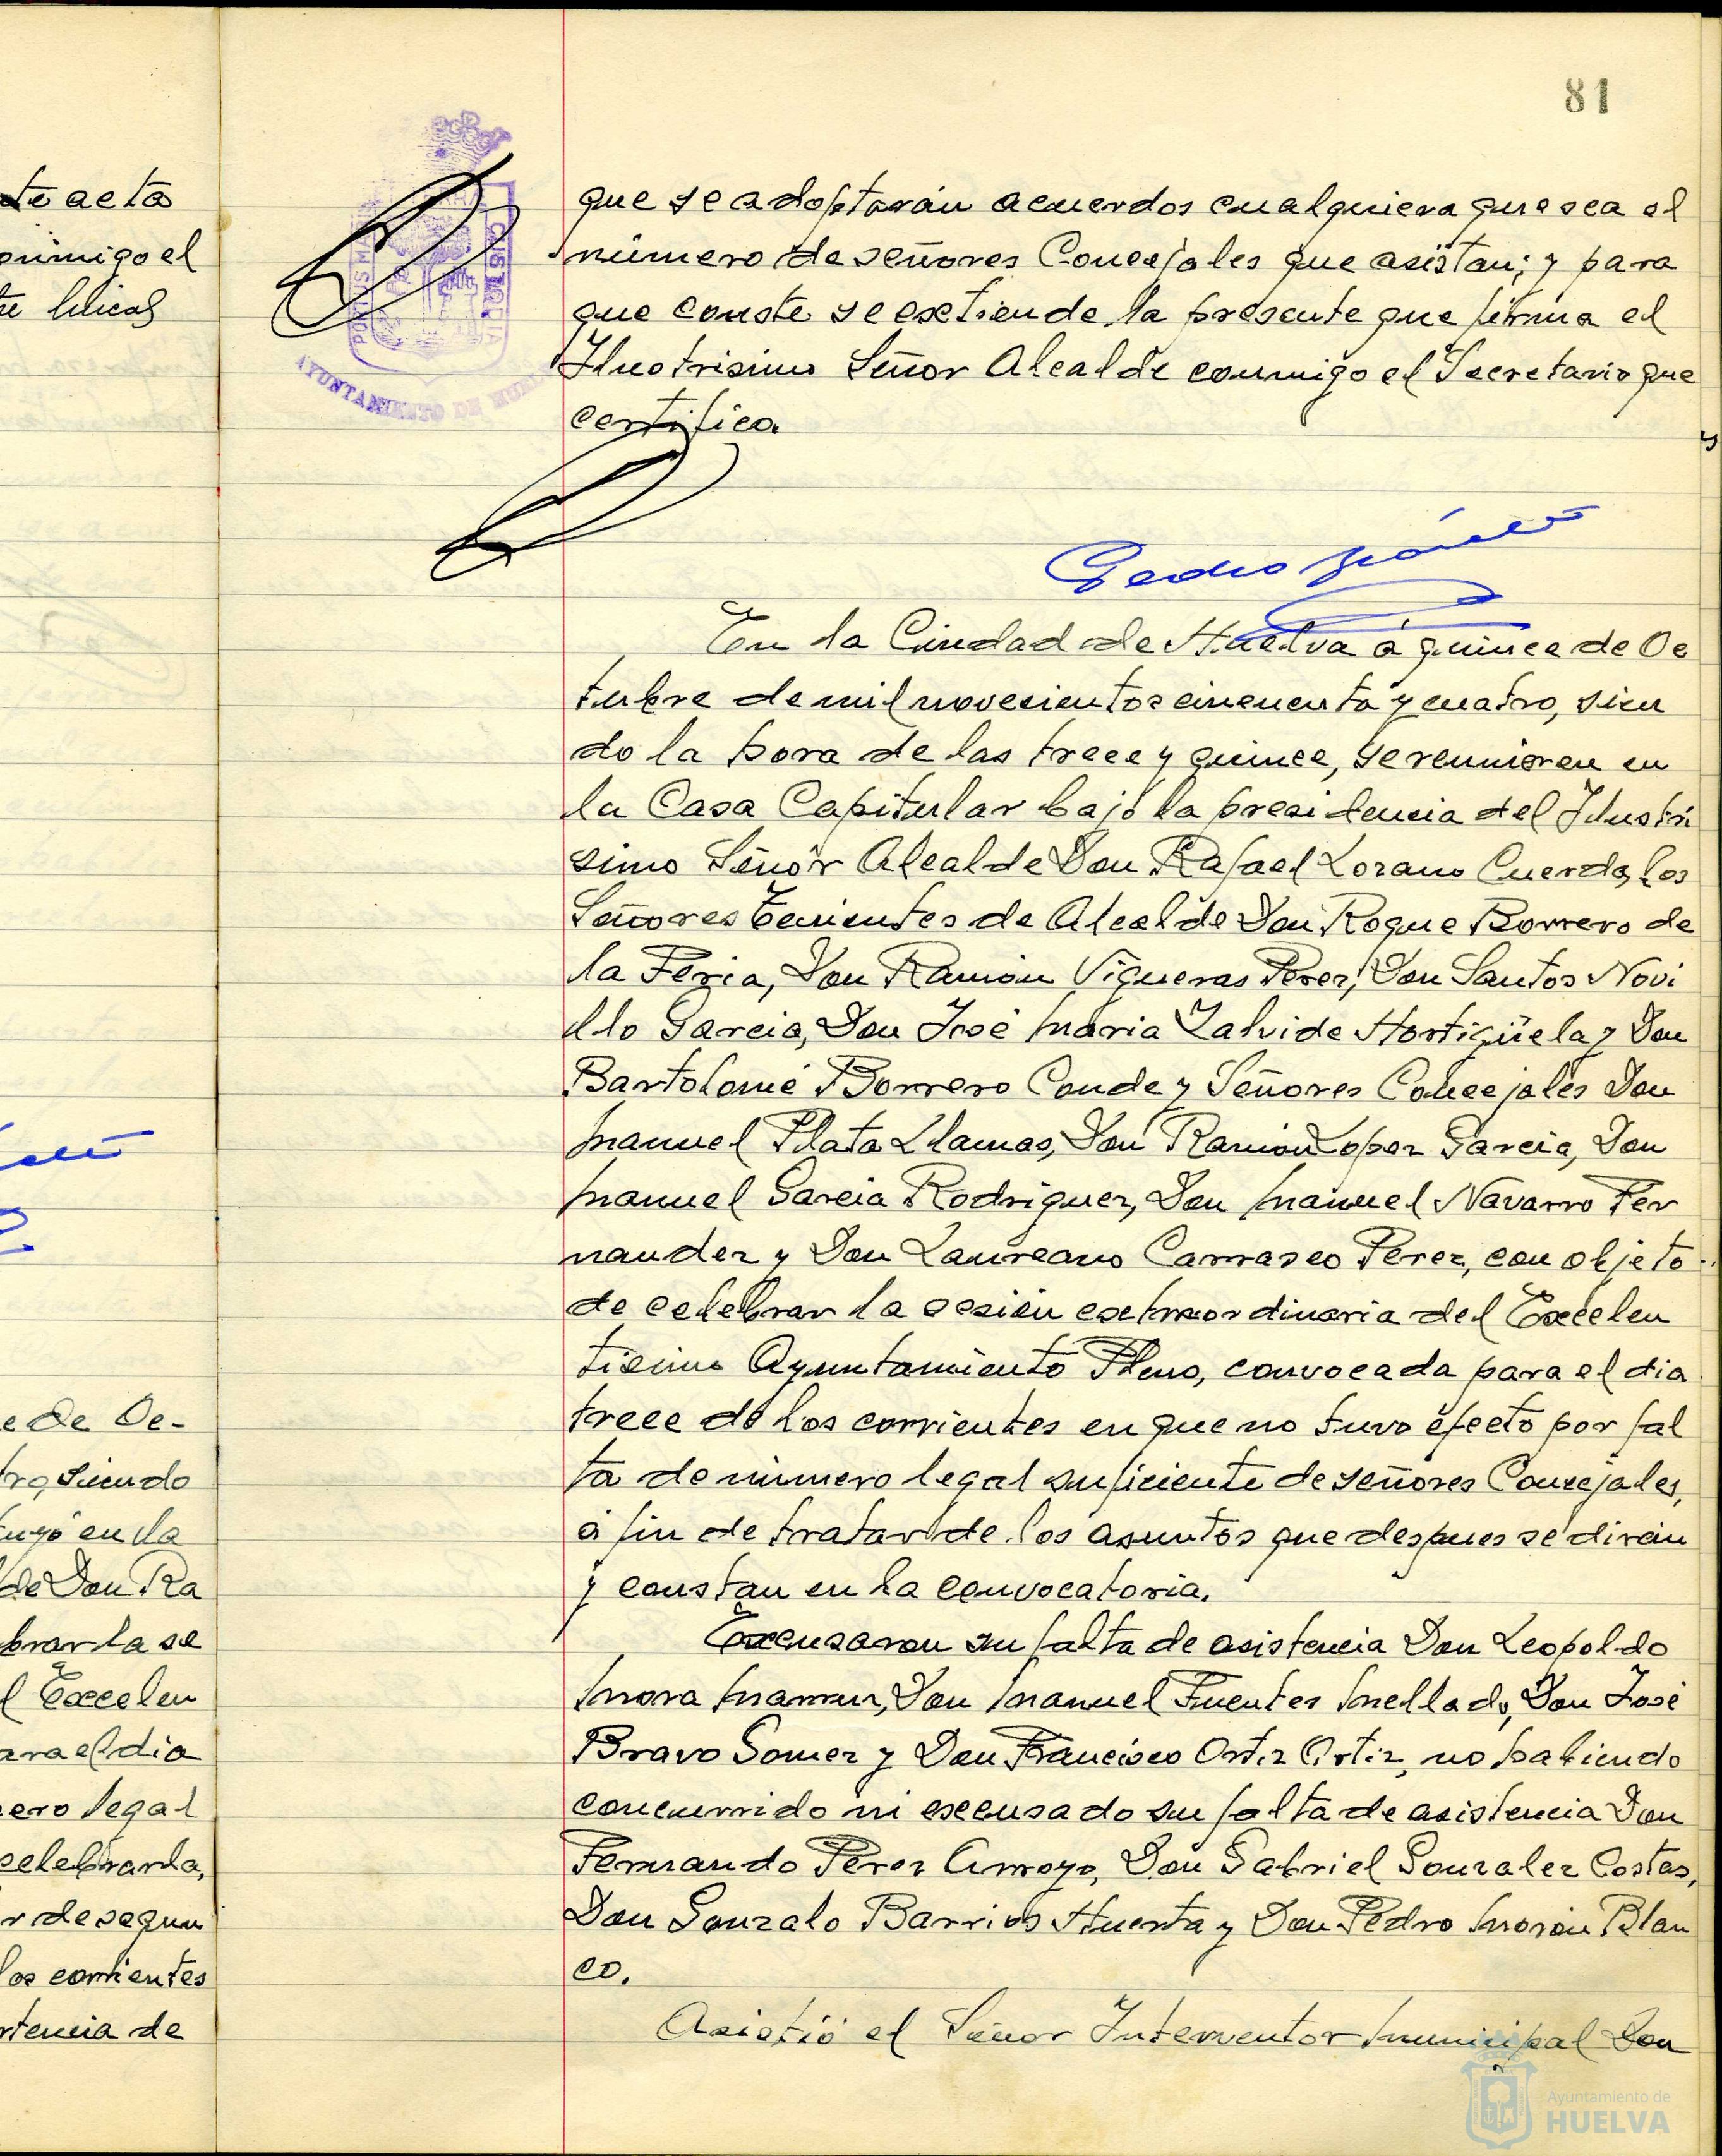 81
te acta
onmigo el
te líneas
que se adoptarán acuerdos cualquiera que sea el
número de señores Concejales que asistan; y para
que conste se extiende la presente que firma el
Ilustrisimo Señor Alcalde conmigo el Secretario que
certifica.
PORTUS MARIS
CUSTODIA
AYUNTAMIENTO DE HUELVA
En la Ciudad de Huelva á quince de Oc
tubre de mil novecientos cincuenta y cuatro, sien
do la hora de las trece y quince, se reunieron en
la Casa Capitular bajo la presidencia del Ilustri
simo Señor Alcalde Don Rafael Lozano Cuerda, los
Señores Tenientes de Alcalde Don Roque Borrero de
la Feria, Don Ramón Vigueras Perez, Don Santos Novi
llo Garcia, Don José Maria Zalvide Hortigüela y Don
Bartolomé Borrero Conde y Señores Concejales Don
Manuel Plata Llamas, Don Ramón Lopez Garcia, Don
Manuel Garcia Rodriguez, Don Manuel Navarro Fer
nandez y Don Laureano Carrasco Perez, con objeto
de celebrar la sesión extraordinaria del Excelen
tisimo Ayuntamiento Pleno, convocada para el dia
trece de los corrientes en que no tuvo efecto por fal
ta de número legal suficiente de señores Concejales,
á fin de tratar de los asuntos que despues se dirán
y constan en la convocatoria.
Excusaron su falta de asistencia Don Leopoldo
Mora Don Manuel Fuentes Mellado, Don José
Bravo Gomez y Don Francisco Ortiz Ortiz, no habiendo
concurrido ni excusado su falta de asistencia Don
Fernando Perez Arroyo, Don Gabriel Gonzalez Costas,
Don Gonzalo Barrios Huerta y Don Pedro Morón Blan
co.
Asistió el Señor Interventor Municipal Don
e de Oc-
tro, siendo
tuyó en la
de Don Ra
brar la se
l Excelen
ara el dia
ero legal
celebrarla,
r de segun
los corrientes
rtencia de
Ayuntamiento de
HUELVA